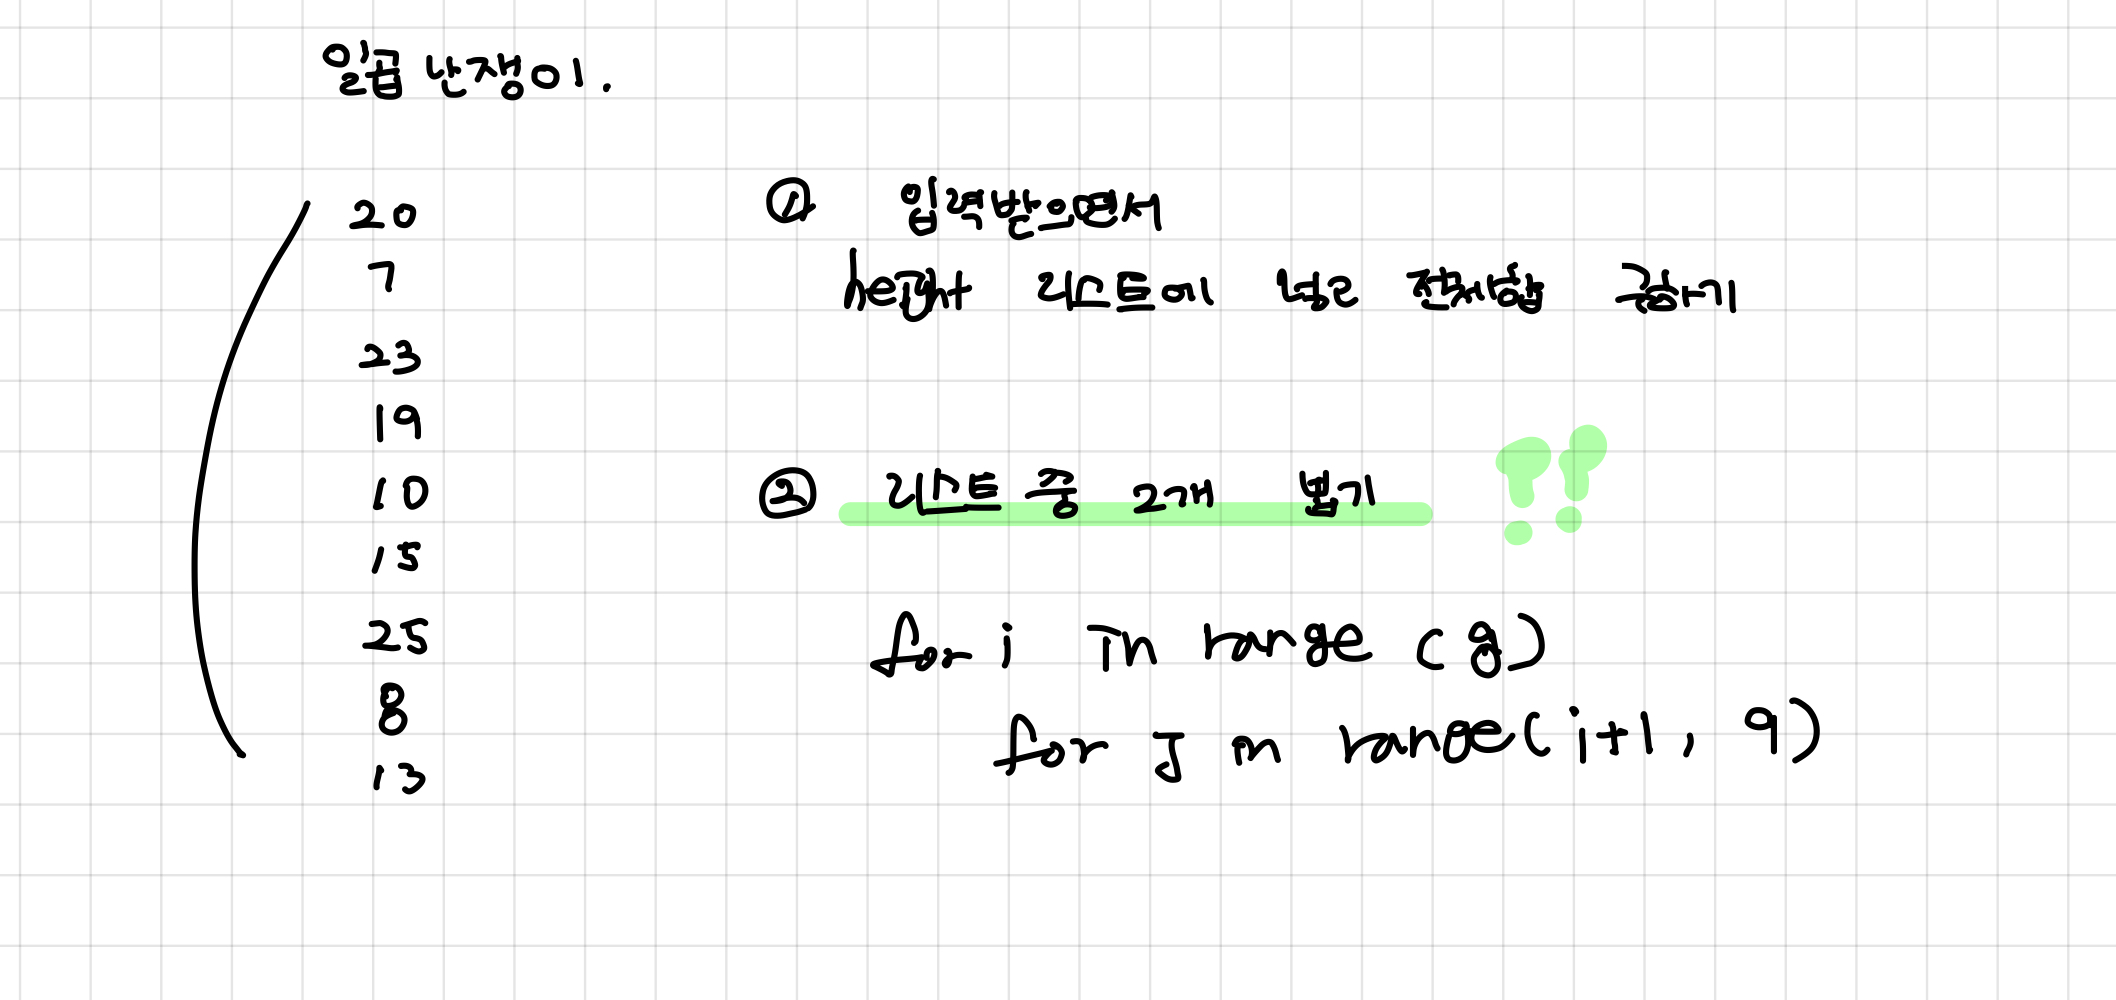 일곱 난쟁이.
20
7
23
19
10
15
25
8
13
① 입력받으면서
height 리스트에 넣고 전체합 구하기
② 리스트 중 2개 뽑기 ??
for i in range (8)
for j in range(i+1, 9)